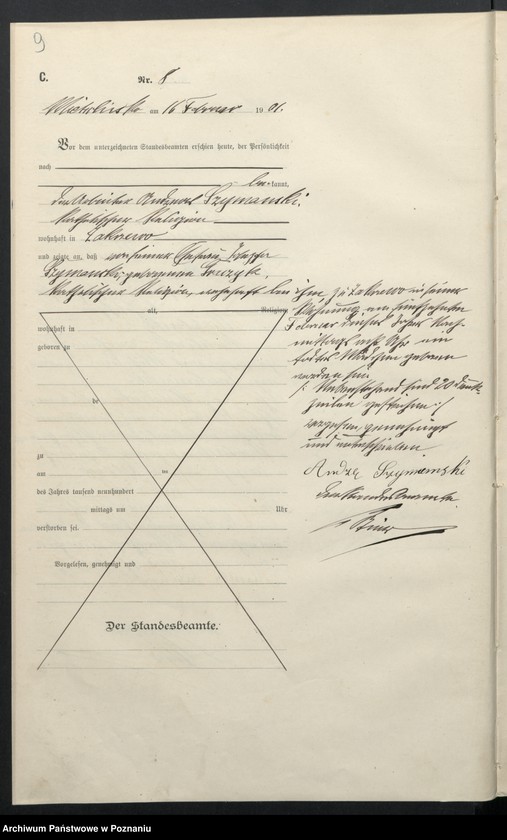 9
C.
Nr. 8
am 16 Februar 1901.
Vor dem unterzeichneten Standesbeamten erschien heute, der Persönlichkeit
nach
bekannt,
der Arbeiter Andreas Szymanski,
katholischer Religion
wohnhaft in Zakrzewo
und zeigte an, daß von seiner Ehefrau
Szymanski, geborenen
katholischer Religion, wohnhaft bei
alt, Religion,
wohnhaft in
geboren zu
de
zu
am ten
des Jahres tausend neunhundert
mittags um Uhr
verstorben sei.
Vorgelesen, genehmigt und
Der Standesbeamte.
ihm zu Zakrzewo in seiner
Wohnung, am fünfzehnten
Februar dieses Jahres Nach-
mittags acht Uhr ein
todtes Mädchen geboren
worden sei.
/: Vorstehend sind 20 Druck-
zeilen gestrichen :/
Vorgelesen, genehmigt
und unterschrieben
Andrzej Szymanski
Der Standesbeamte.
Archiwum Państwowe w Poznaniu